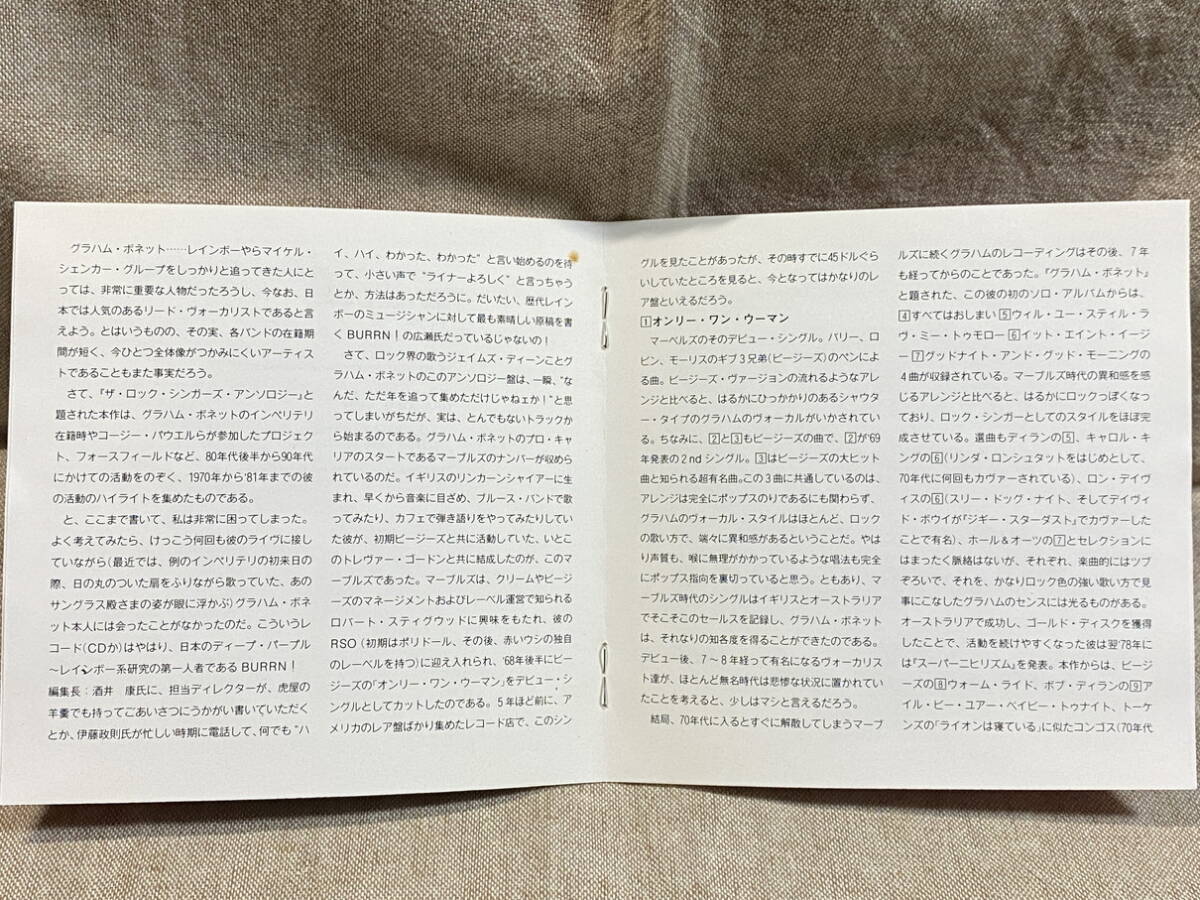 グラハム・ボネット……レインボーやらマイケル・
シェンカー・グループをしっかりと追ってきた人にと
っては、非常に重要な人物だったろうし、今なお、日
本では人気のあるリード・ヴォーカリストであると言
えよう。とはいうものの、その実、各バンドの在籍期
間が短く、今ひとつ全体像がつかみにくいアーティス
トであることもまた事実だろう。
さて、『ザ・ロック・シンガーズ・アンソロジー』と
題された本作は、グラハム・ボネットのインペリテリ
在籍時やコージー・パウエルらが参加したプロジェク
ト、フォースフィールドなど、80年代後半から90年代
にかけての活動をのぞく、1970年から'81年までの彼
の活動のハイライトを集めたものである。
と、ここまで書いて、私は非常に困ってしまった。
よく考えてみたら、けっこう何回も彼のライヴに接し
ていながら(最近では、例のインペリテリの初来日の
際、日の丸のついた扇をふりながら歌っていた、あの
サングラス殿さまの姿が眼に浮かぶ)グラハム・ボネ
ット本人には会ったことがなかったのだ。こういうレ
コード(CDか)はやはり、日本のディープ・パープル
〜レインボー系研究の第一人者であるBURRN！
編集長：酒井　康氏に、担当ディレクターが、虎屋の
羊羹でも持ってごあいさつにうかがい書いていただく
とか、伊藤政則氏が忙しい時期に電話して、何でも"ハ
イ、ハイ、わかった、わかった"と言い始めるのを待
って、小さい声で"ライナーよろしく"と言っちゃう
とか、方法はあっただろうに。だいたい、歴代レイン
ボーのミュージシャンに対して最も素晴しい原稿を書
くBURRN！の広瀬氏だっているじゃないの！
さて、ロック界の歌うジェイムズ・ディーンことグ
ラハム・ボネットのこのアンソロジー盤は、一瞬、"な
んだ、ただ年を追って集めただけじゃねェか！"と思
ってしまいがちだが、実は、とんでもないトラックか
ら始まるのである。グラハム・ボネットのプロ・キャ
リアのスタートであるマーブルズのナンバーが収めら
れているのだ。イギリスのリンカーンシャイアーに生
まれ、早くから音楽に目ざめ、ブルース・バンドで歌
ってみたり、カフェで弾き語りをやってみたりしてい
た彼が、初期ビージーズと共に活動していた、いとこ
のトレヴァー・ゴードンと共に結成したのが、このマ
ーブルズであった。マーブルズは、クリームやビージ
ーズのマネージメントおよびレーベル運営で知られる
ロバート・スティグウッドに興味をもたれ、彼の
RSO(初期はポリドール、その後、赤いウシの独自
のレーベルを持つ)に迎え入れられ、'68年後半にビー
ジーズの「オンリー・ワン・ウーマン」をデビュー・シ
ングルとしてカットしたのである。5年ほど前に、ア
メリカのレア盤ばかり集めたレコード店で、このシン
グルを見たことがあったが、その時すでに45ドルぐら
いしていたところを見ると、今となってはかなりのレ
ア盤といえるだろう。
1オンリー・ワン・ウーマン
マーベルズのそのデビュー・シングル。バリー、ロ
ビン、モーリスのギブ3兄弟(ビージーズ)のペンによ
る曲。ビージーズ・ヴァージョンの流れるようなアレ
ンジと比べると、はるかにひっかかりのあるシャウタ
ー・タイプのグラハムのヴォーカルがいかされてい
る。ちなみに、2と3もビージーズの曲で、2が'69
年発表の2ndシングル。3はビージーズの大ヒット
曲と知られる超有名曲。この3曲に共通しているのは、
アレンジは完全にポップスのりであるにも関わらず、
グラハムのヴォーカル・スタイルはほとんど、ロック
の歌い方で、端々に異和感があるということだ。やは
り声質も、喉に無理がかかっているような唱法も完全
にポップス指向を裏切っていると思う。ともあり、マ
ーブルズ時代のシングルはイギリスとオーストラリア
でそこそこのセールスを記録し、グラハム・ボネット
は、それなりの知各度を得ることができたのである。
デビュー後、7〜8年経って有名になるヴォーカリス
ト達が、ほとんど無名時代は悲惨な状況に置かれてい
たことを考えると、少しはマシと言えるだろう。
結局、70年代に入るとすぐに解散してしまうマーブ
ルズに続くグラハムのレコーディングはその後、7年
も経ってからのことであった。『グラハム・ボネット』
と題された、この彼の初のソロ・アルバムからは、
4すべてはおしまい5ウィル・ユー・スティル・ラ
ヴ・ミー・トゥモロー6イット・エイント・イージ
ー7グッドナイト・アンド・グッド・モーニングの
4曲が収録されている。マーブルズ時代の異和感を感
じるアレンジと比べると、はるかにロックっぽくなっ
ており、ロック・シンガーとしてのスタイルをほぼ完
成させている。選曲もディランの5、キャロル・キ
ングの6(リンダ・ロンシュタットをはじめとして、
70年代に何回もカヴァーされている)、ロン・デイヴ
ィスの6(スリー・ドッグ・ナイト、そしてデイヴィ
ド・ボウイが『ジギー・スターダスト』でカヴァーした
ことで有名)、ホール&オーツの7とセレクションに
はまったく脈絡はないが、それぞれ、楽曲的にはツブ
ぞろいで、それを、かなりロック色の強い歌い方で見
事にこなしたグラハムのセンスには光るものがある。
オーストラリアで成功し、ゴールド・ディスクを獲得
したことで、活動を続けやすくなった彼は翌'78年に
は『スーパーニヒリズム』を発表。本作からは、ビージ
ーズの8ウォーム・ライド、ボブ・ディランの9ア
イル・ビー・ユアー・ベイビー・トゥナイト、トーケ
ンズの「ライオンは寝ている」に似たコンゴス(70年代